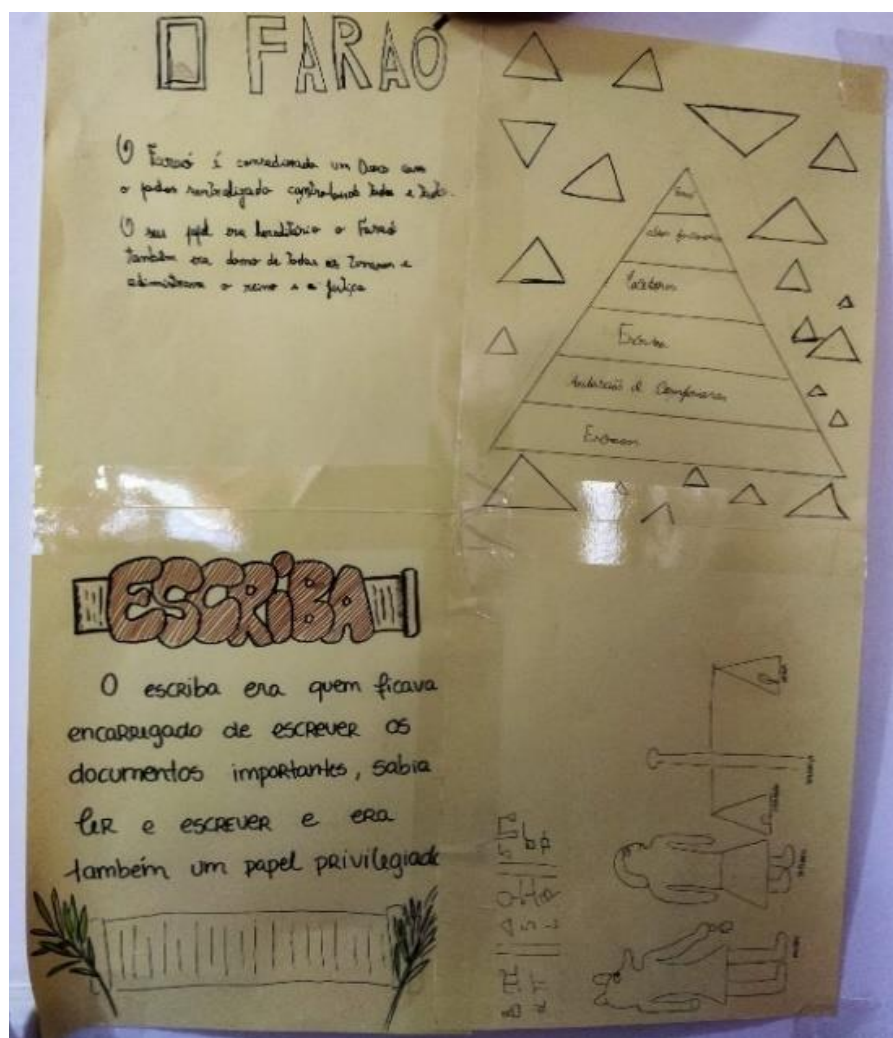 O FARAO
O Faraó é considerado um Deus com
o poder centralizado controlando todos e tudo.
O seu papel era hereditário o Faraó
também era dono de todas as terras e
administrava o reino e a justiça
Faraó
Escriba
Artesãos e Camponeses
Escravos
ESCRIBA
O escriba era quem ficava
encarregado de escrever os
documentos importantes, sabia
ler e escrever e era
também um papel privilegiado